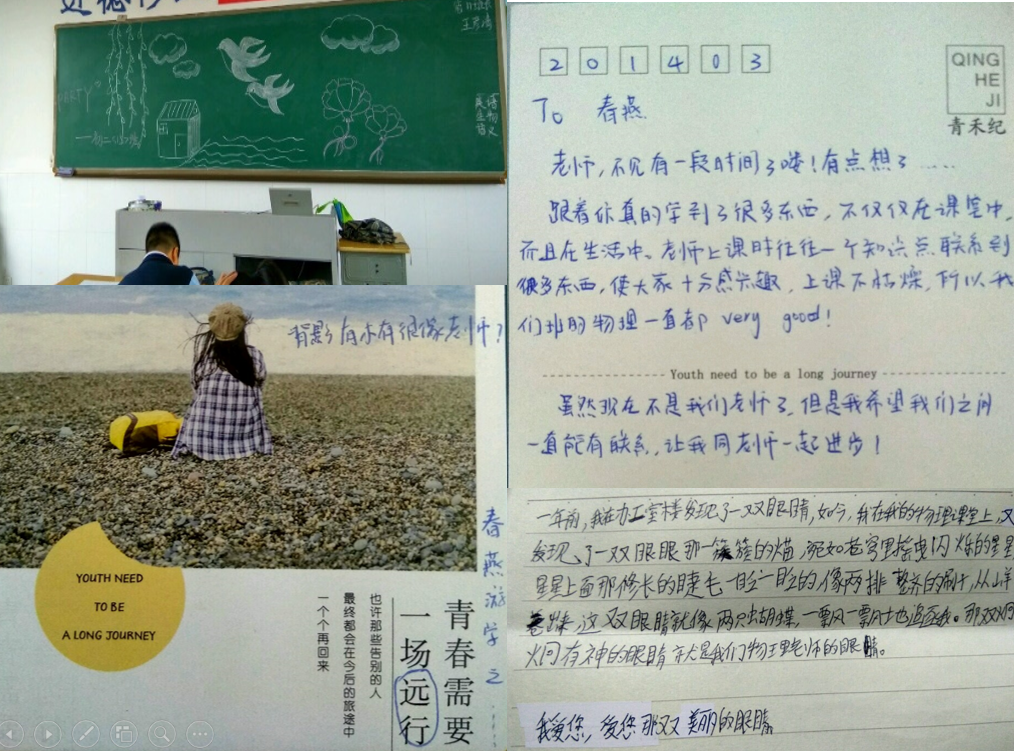 PARTY
王彦涛
2 0 1 4 0 3
QING
HE
JI
青禾纪
To 春燕
老师，不见有一段时间了喽！有点想了……
跟着你真的学到了很多东西，不仅仅在课堂中，
而且在生活中。老师上课时往往一个知识点联系到
很多东西，使大家十分感兴趣，上课不枯燥，所以我
们班的物理一直都 very good！
Youth need to be a long journey
虽然现在不是我们老师了，但是我希望我们之间
一直能有联系，让我同老师一起进步！
背影有木有很像老师？
YOUTH NEED
TO BE
A LONG JOURNEY
青春需要
一场远行
也许那些告别的人
最终都会在今后的旅途中
一个个再回来
春燕游学之……
一年前，我在办工室楼发现了一双眼睛，如今，我在我的物理课堂上，又
发现了一双眼睛那一簇簇的
星星上面那修长的睫毛一眨一眨的像两排整齐的刷子，从
这双眼睛就像两只蝴蝶，一飘一飘地追逐我。那双炯
炯有神的眼睛就是我们物理老师的眼睛。
我爱您，爱您那双美丽的眼睛